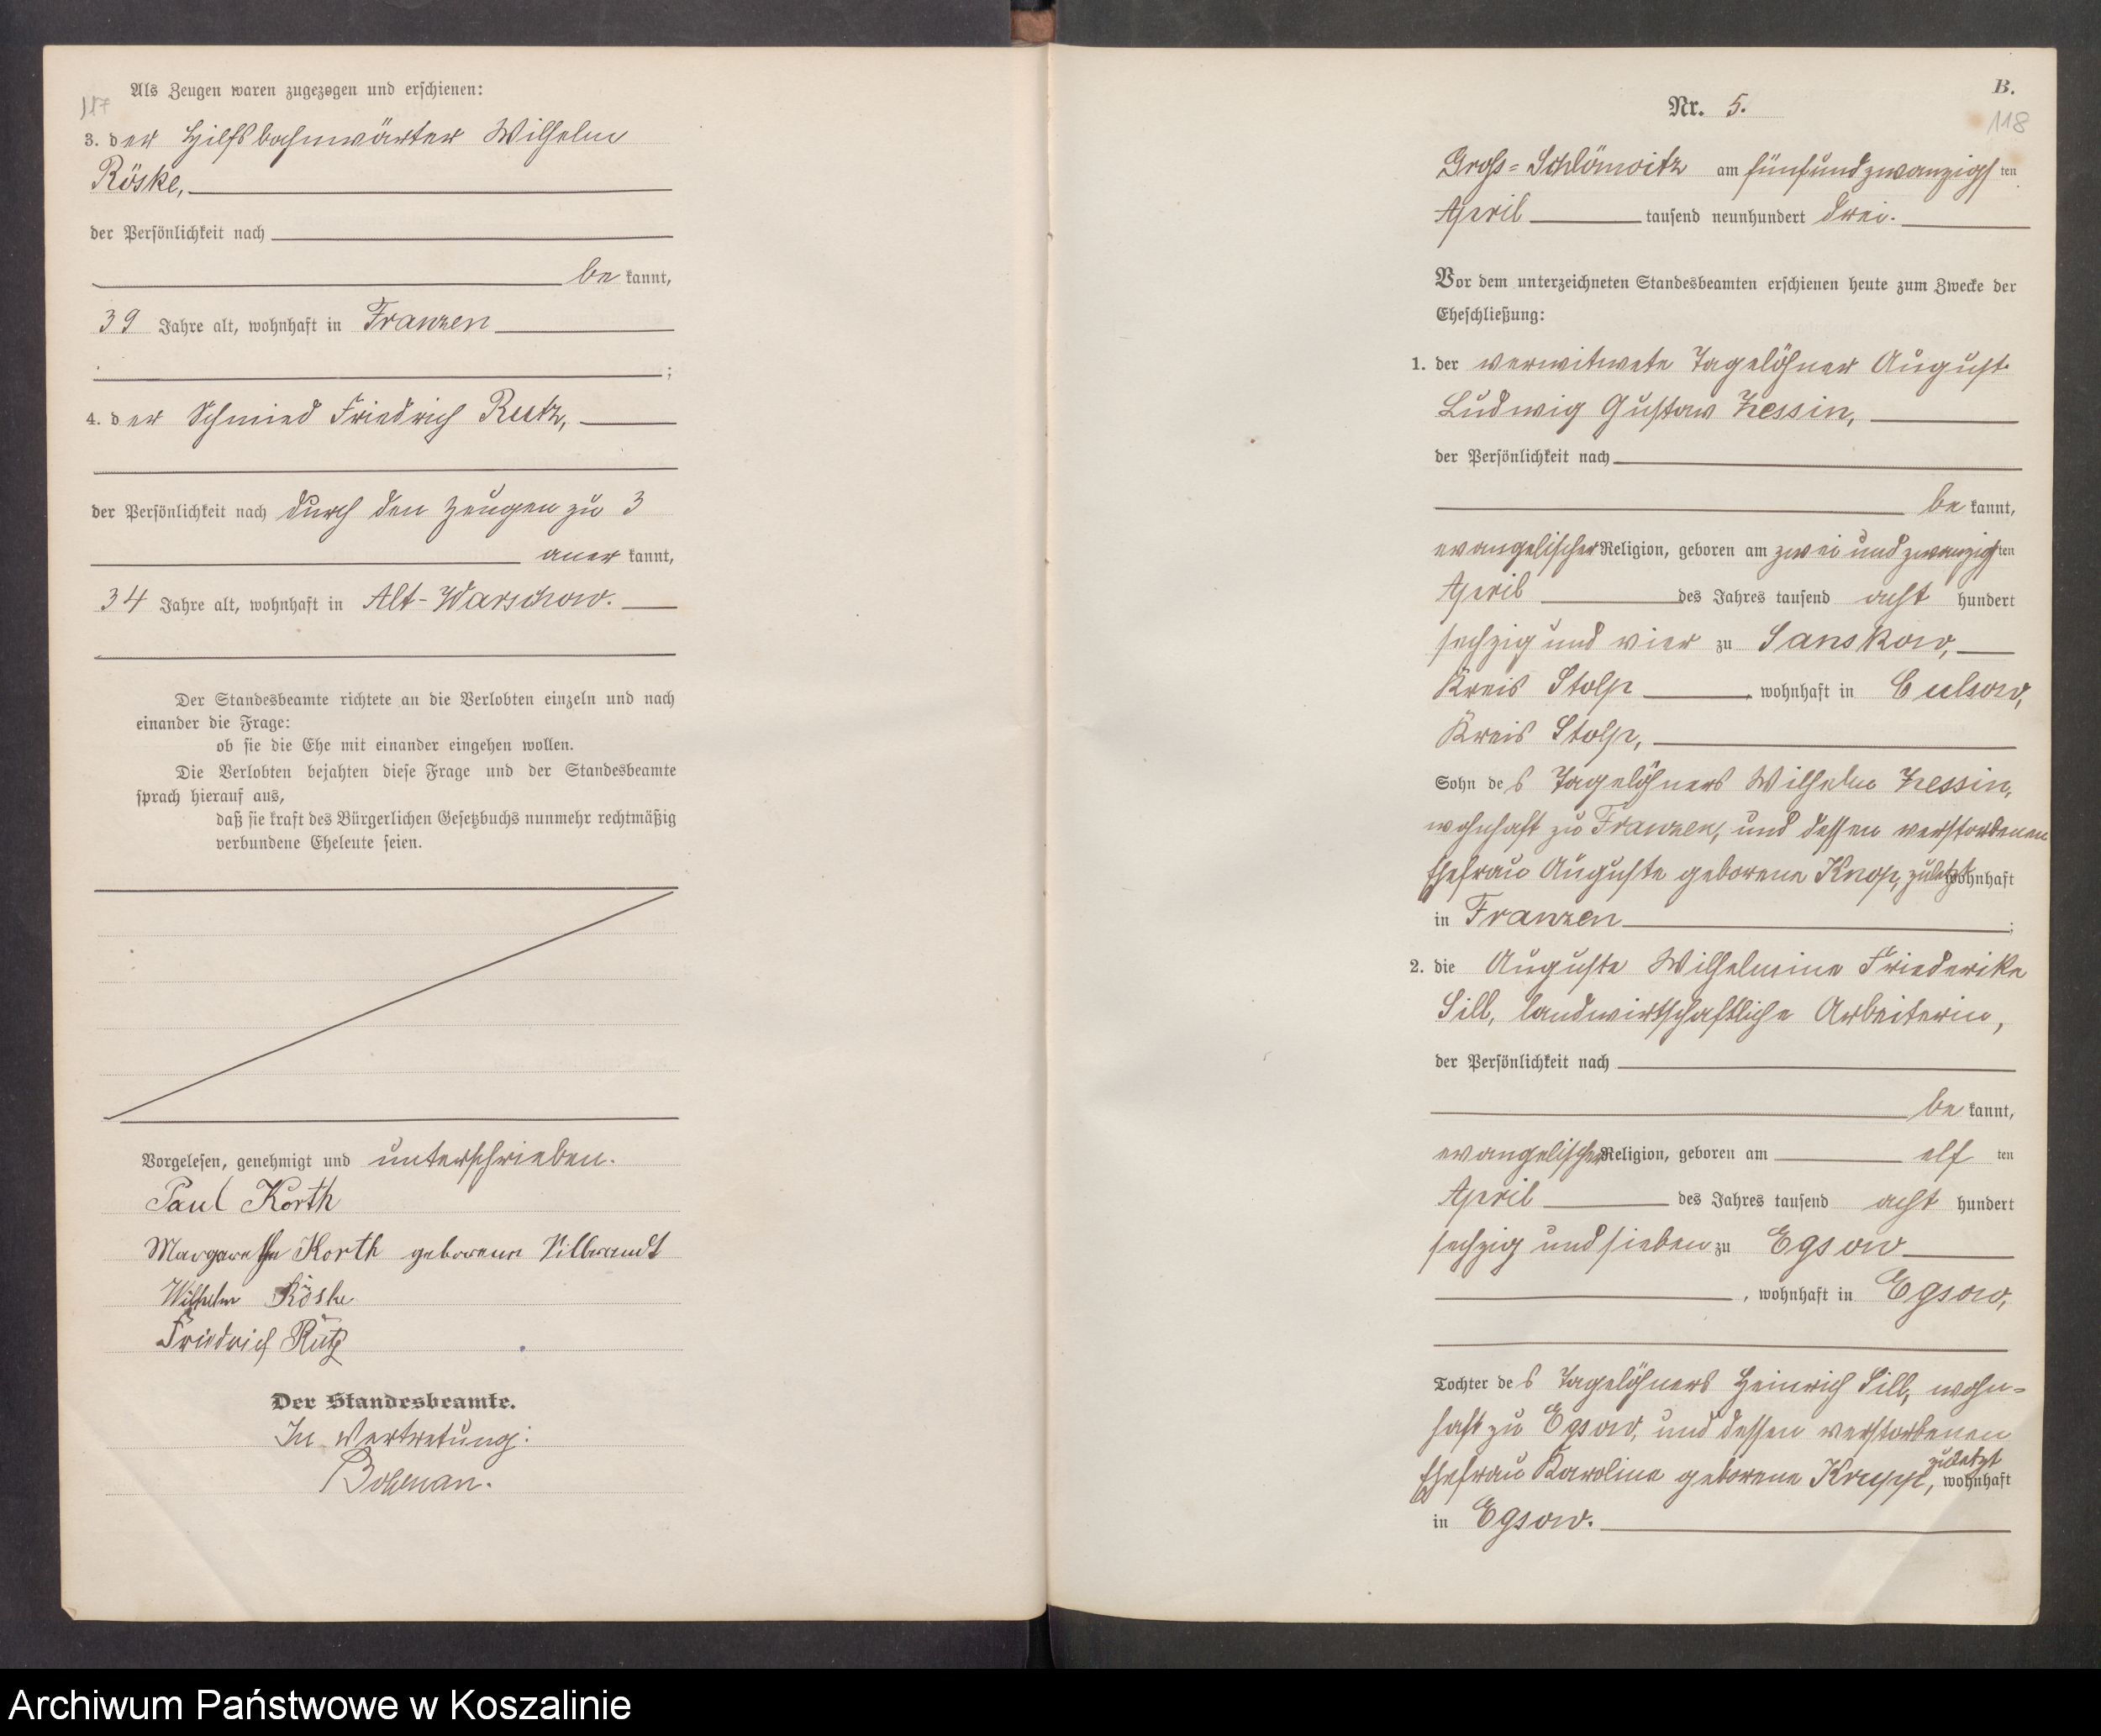 117
Als Zeugen waren zugezogen und erschienen:
3. der Hilfsbahnwärter Wilhelm
Röske,
der Persönlichkeit nach
be kannt,
39 Jahre alt, wohnhaft in Franzen
;
4. der Schmied Friedrich Rutz,
der Persönlichkeit nach durch den Zeugen zu 3
aner kannt,
34 Jahre alt, wohnhaft in Alt-Warschow.
Der Standesbeamte richtete an die Verlobten einzeln und nach
einander die Frage:
ob sie die Ehe mit einander eingehen wollen.
Die Verlobten bejahten diese Frage und der Standesbeamte
sprach hierauf aus,
daß sie kraft des Bürgerlichen Gesetzbuchs nunmehr rechtmäßig
verbundene Eheleute seien.
Vorgelesen, genehmigt und unterschrieben.
Paul Korth
Margarethe Korth geborene Vilbrandt
Wilhelm Röske
Friedrich Rutz
Der Standesbeamte.
In Vertretung:
B.
Nr. 5.
118
Gross-Schlönwitz am fünfundzwanzigs ten
April tausend neunhundert drei.
Vor dem unterzeichneten Standesbeamten erschienen heute zum Zwecke der
Eheschließung:
1. der verwitwete Tagelöhner August
Ludwig Gustav Zessin,
der Persönlichkeit nach
be kannt,
evangelischer Religion, geboren am zwei und zwanzigsten
April des Jahres tausend acht hundert
sechzig und vier zu Sanskow,
Kreis Stolp, wohnhaft in Culsow,
Kreis Stolp,
Sohn des Tagelöhners Wilhelm Zessin,
wohnhaft zu Franzen, und dessen verstorbenen
Ehefrau Auguste geborene Knop, zuletzt wohnhaft
in Franzen ;
2. die Auguste Wilhelmine Friederike
Sill, landwirtschaftliche Arbeiterin,
der Persönlichkeit nach
be kannt,
evangelischer Religion, geboren am elf ten
April des Jahres tausend acht hundert
sechzig und sieben zu Egsow
, wohnhaft in Egsow,
Tochter des Tagelöhners Heinrich Sill, wohn-
haft zu Egsow, und dessen verstorbenen
Ehefrau Karoline geborene Krupp, zuletzt wohnhaft
in Egsow.
Archiwum Państwowe w Koszalinie